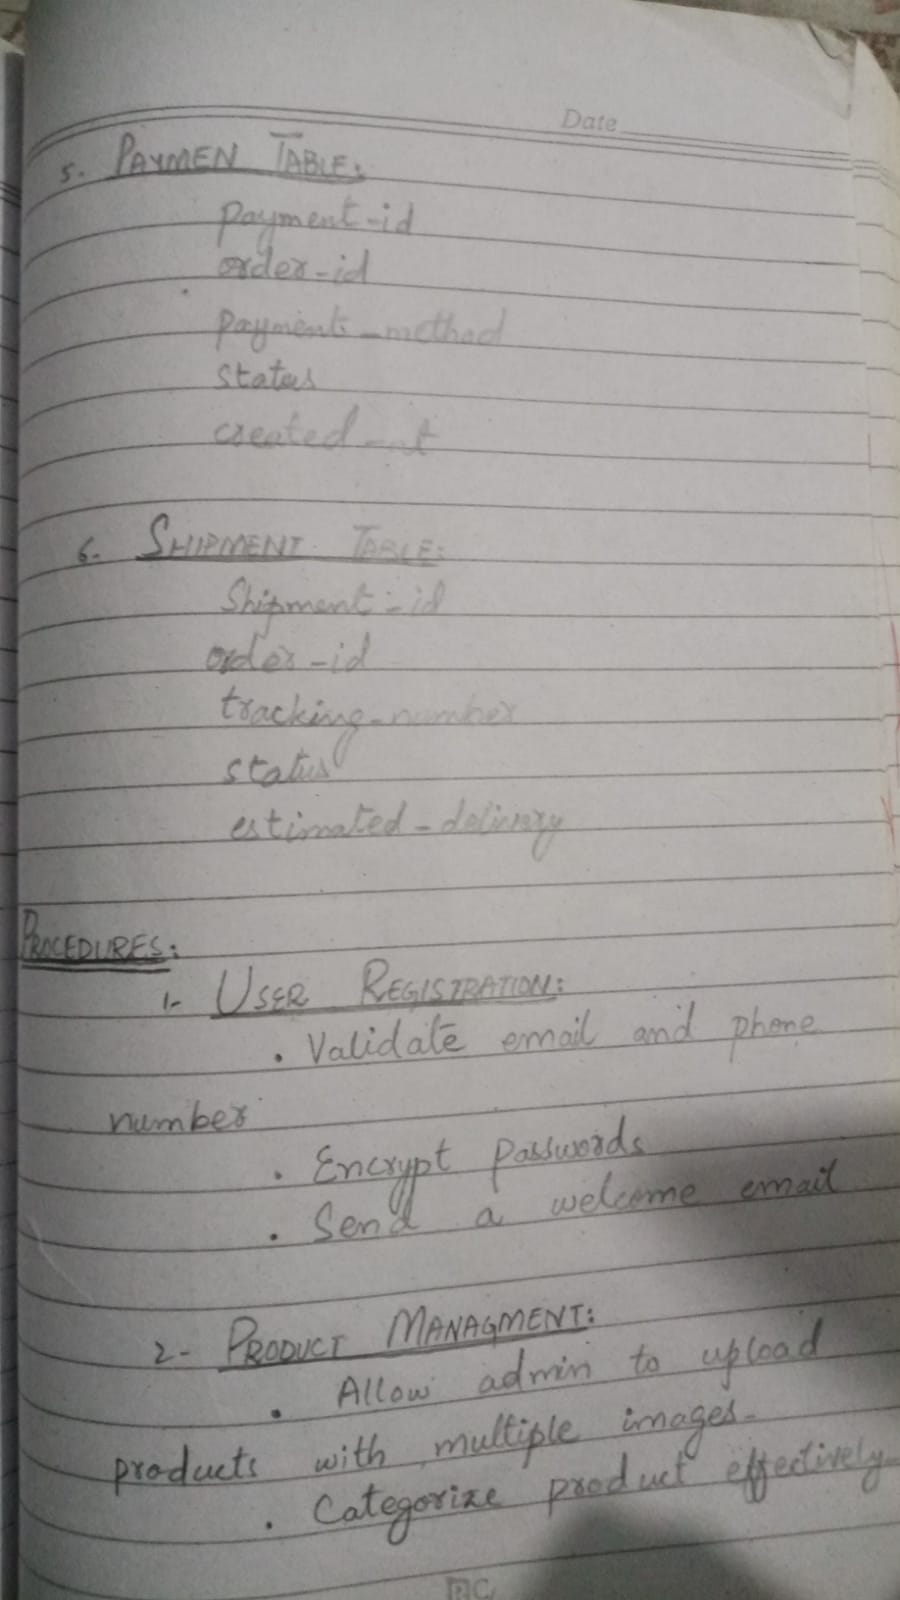 Date
5. PAYMEN TABLE:
payment-id
order-id
payment-method
status
created-at
6- SHIPMENT TABLE:
Shipment-id
order-id
tracking-number
status
estimated-delivery
PROCEDURES:
1- USER REGISTRATION:
• Validate email and phone
number
• Encrypt passwords
• Send a welcome email
2- PRODUCT MANAGMENT:
• Allow admin to upload
products with multiple images-
• Categorize product effectively-